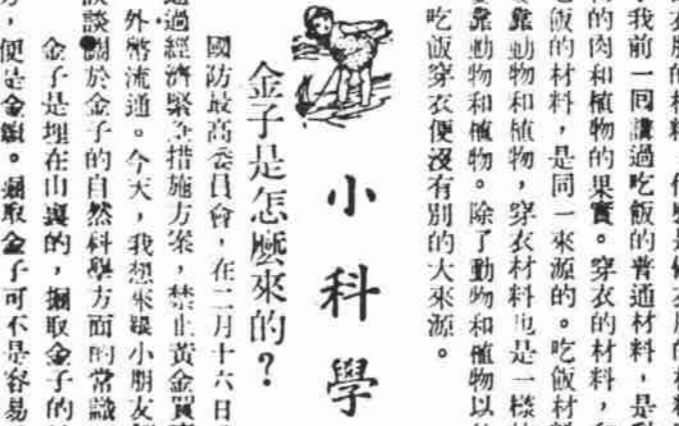 我前一回講過吃飯的普通材料，是動
的肉和植物的果實。穿衣的材料，和
吃飯的材料，是同一來源的。吃飯材料
靠動物和植物，穿衣材料也是一樣
靠動物和植物。除了動物和植物以
吃飯穿衣便沒有別的大來源。
小科學
金子是怎麼來的？
國防最高委員會，在二月十六日
通過經濟緊急措施方案，禁止黃金買賣
外幣流通。今天，我想來跟小朋友
談談關於金子的自然科學方面的常識
金子是埋在山裏的，掘取金子的
便是金鑛。掘取金子可不是容易